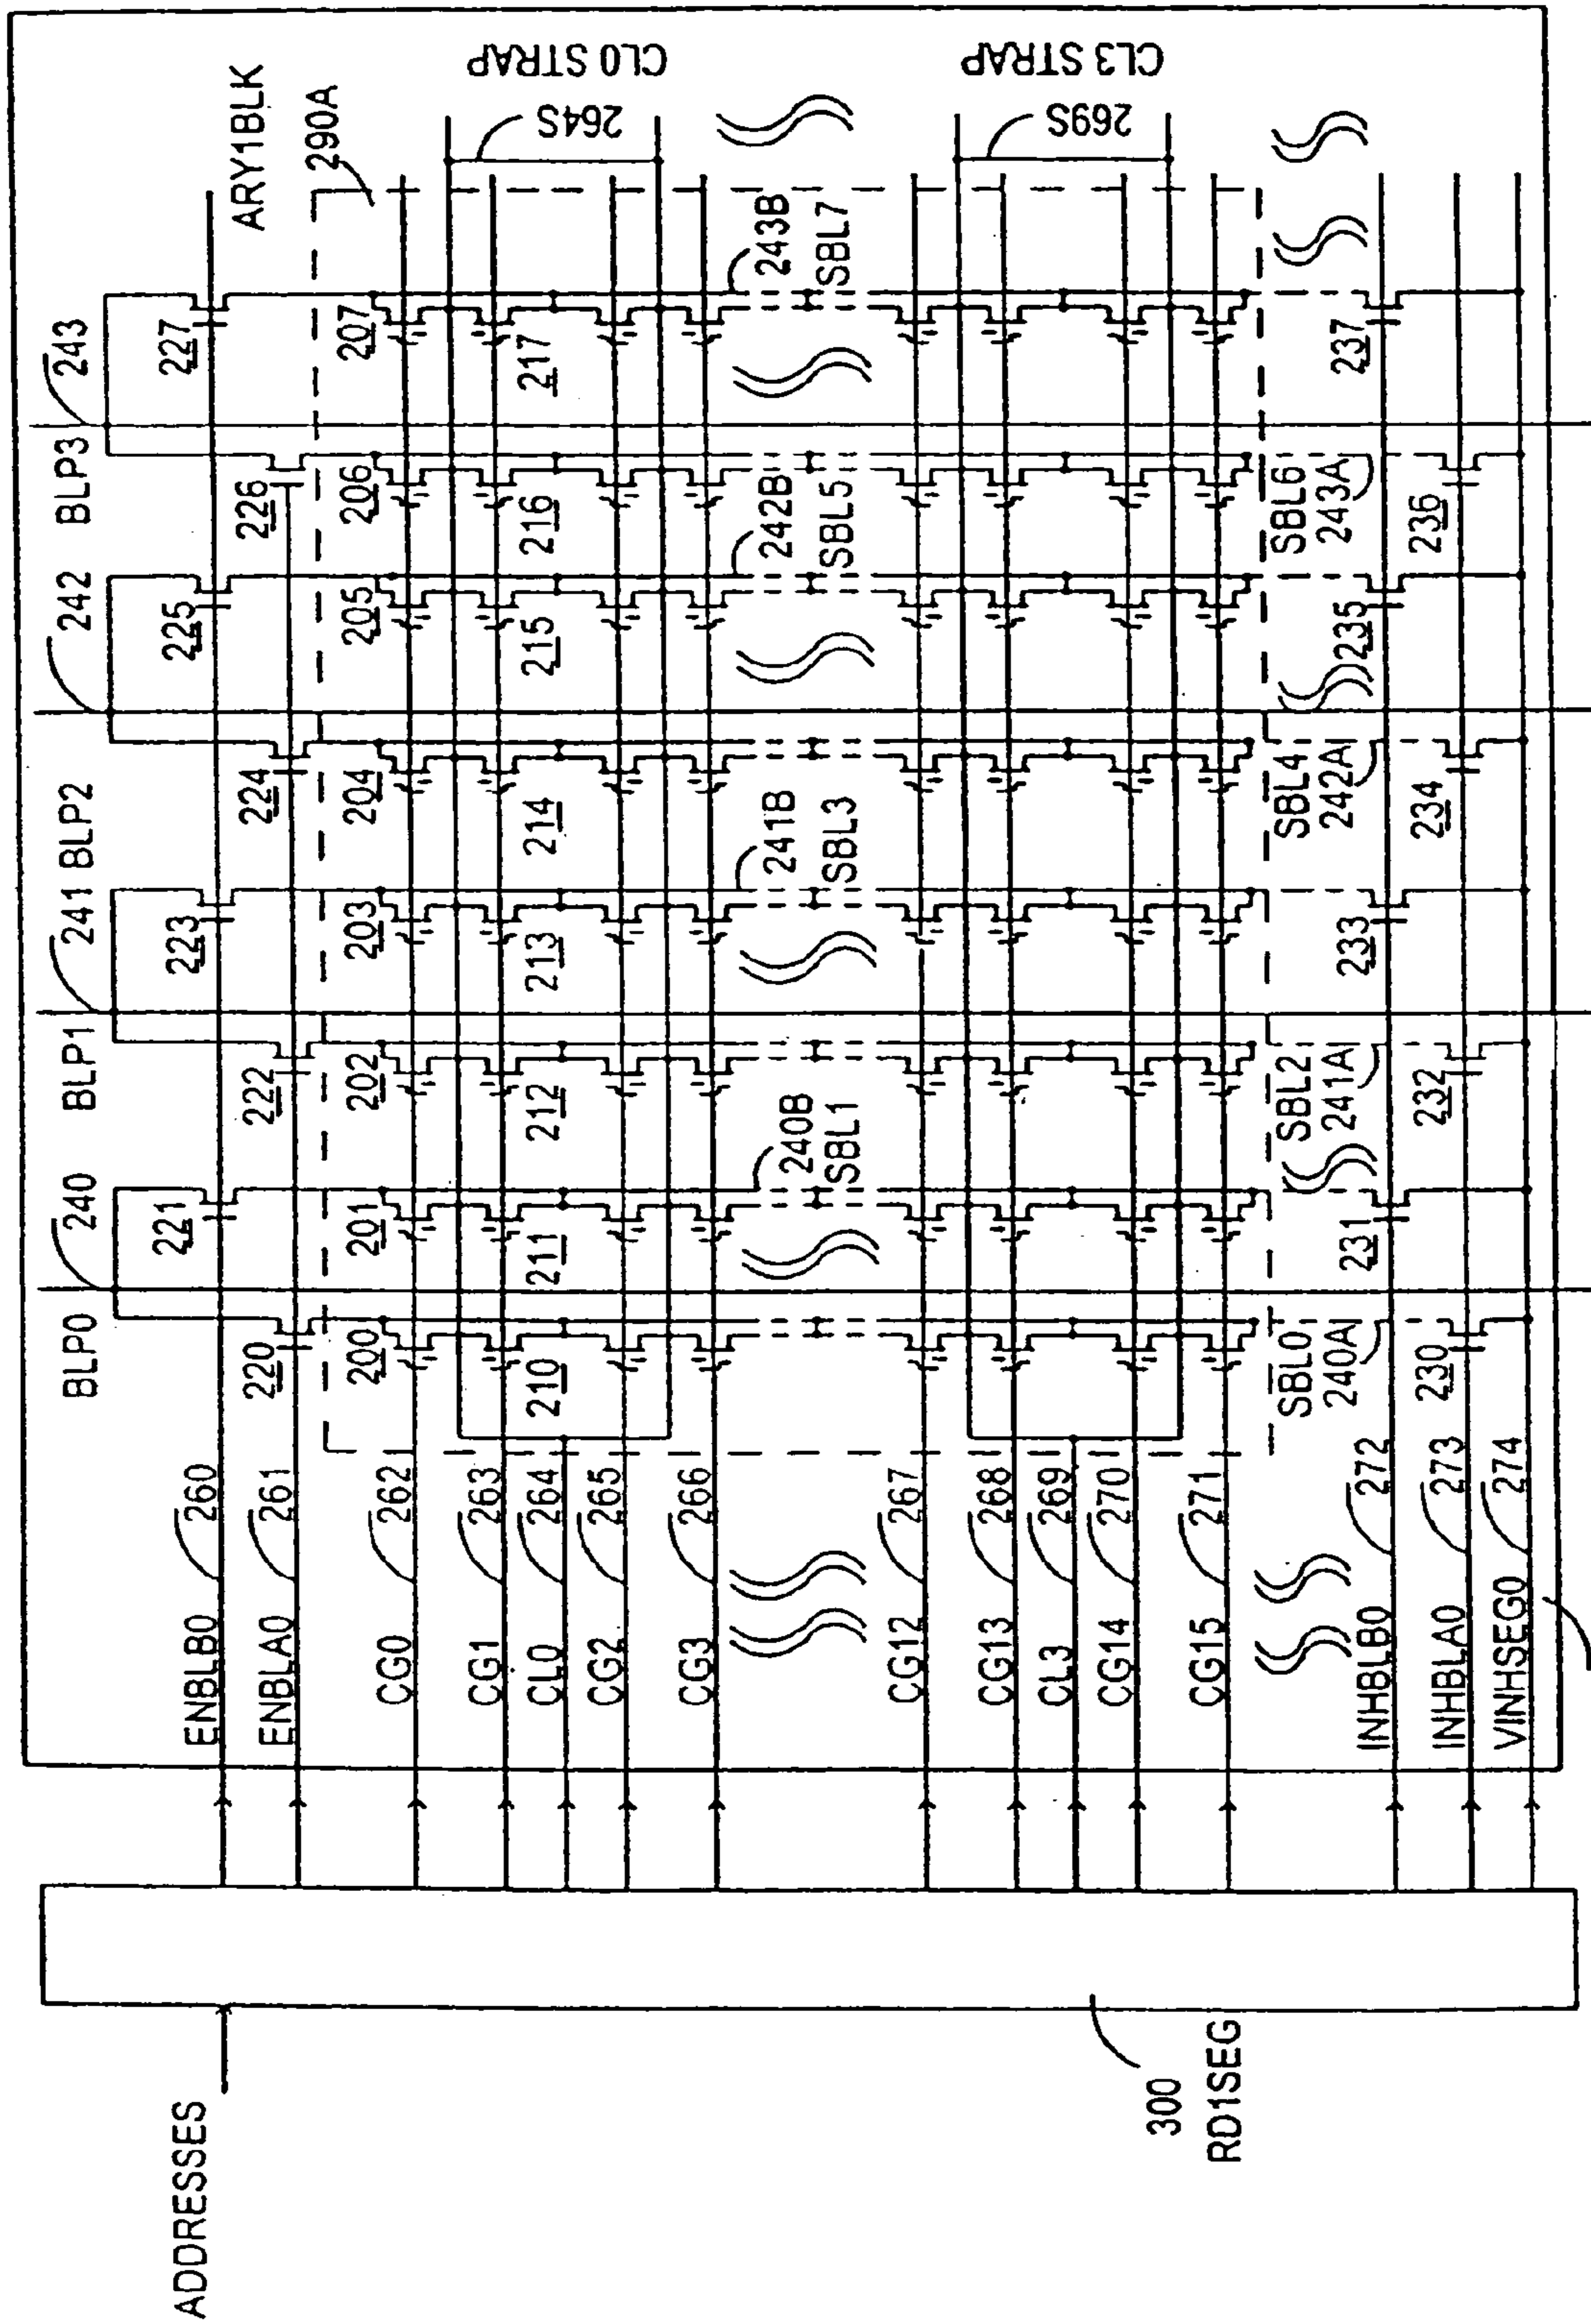 ADDRESSES
300
RD1SEG
ENBLB0 260
ENBLA0 261
CG0 262
CG1 263
CL0 264
CG2 265
CG3 266
CG12 267
CG13 268
CL3 269
CG14 270
CG15 271
INHBLB0 272
INHBLA0 273
VINHSEG0 274
BLP0 240
BLP1 241
BLP2 242
BLP3 243
220 221 222 223 224 225 226 227
ARY1BLK
290A
200 201 202 203 204 205 206 207
210 211 212 213 214 215 216 217
264S
CL0 STRAP
240B
SBL1
241B
SBL3
242B
SBL5
243B
SBL7
269S
CL3 STRAP
SBL0
240A
SBL2
241A
SBL4
242A
SBL6
243A
231 233 235 237
230 232 234 236